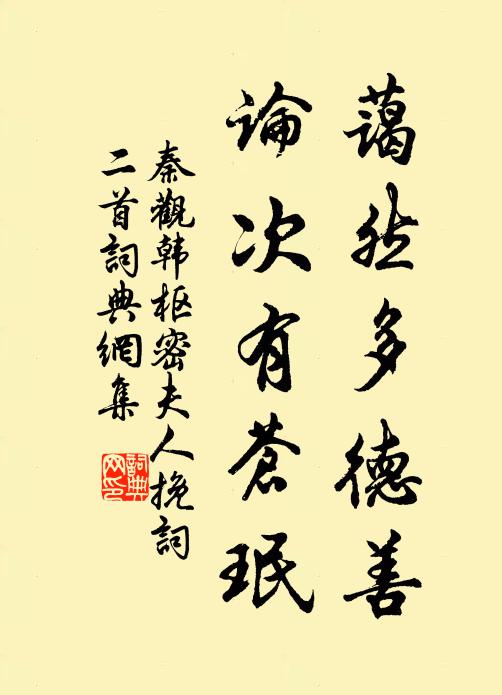 藹然多德善
論次有蒼珉
秦觀韩枢密夫人挽詞
二首詞典網集
詞典
网印